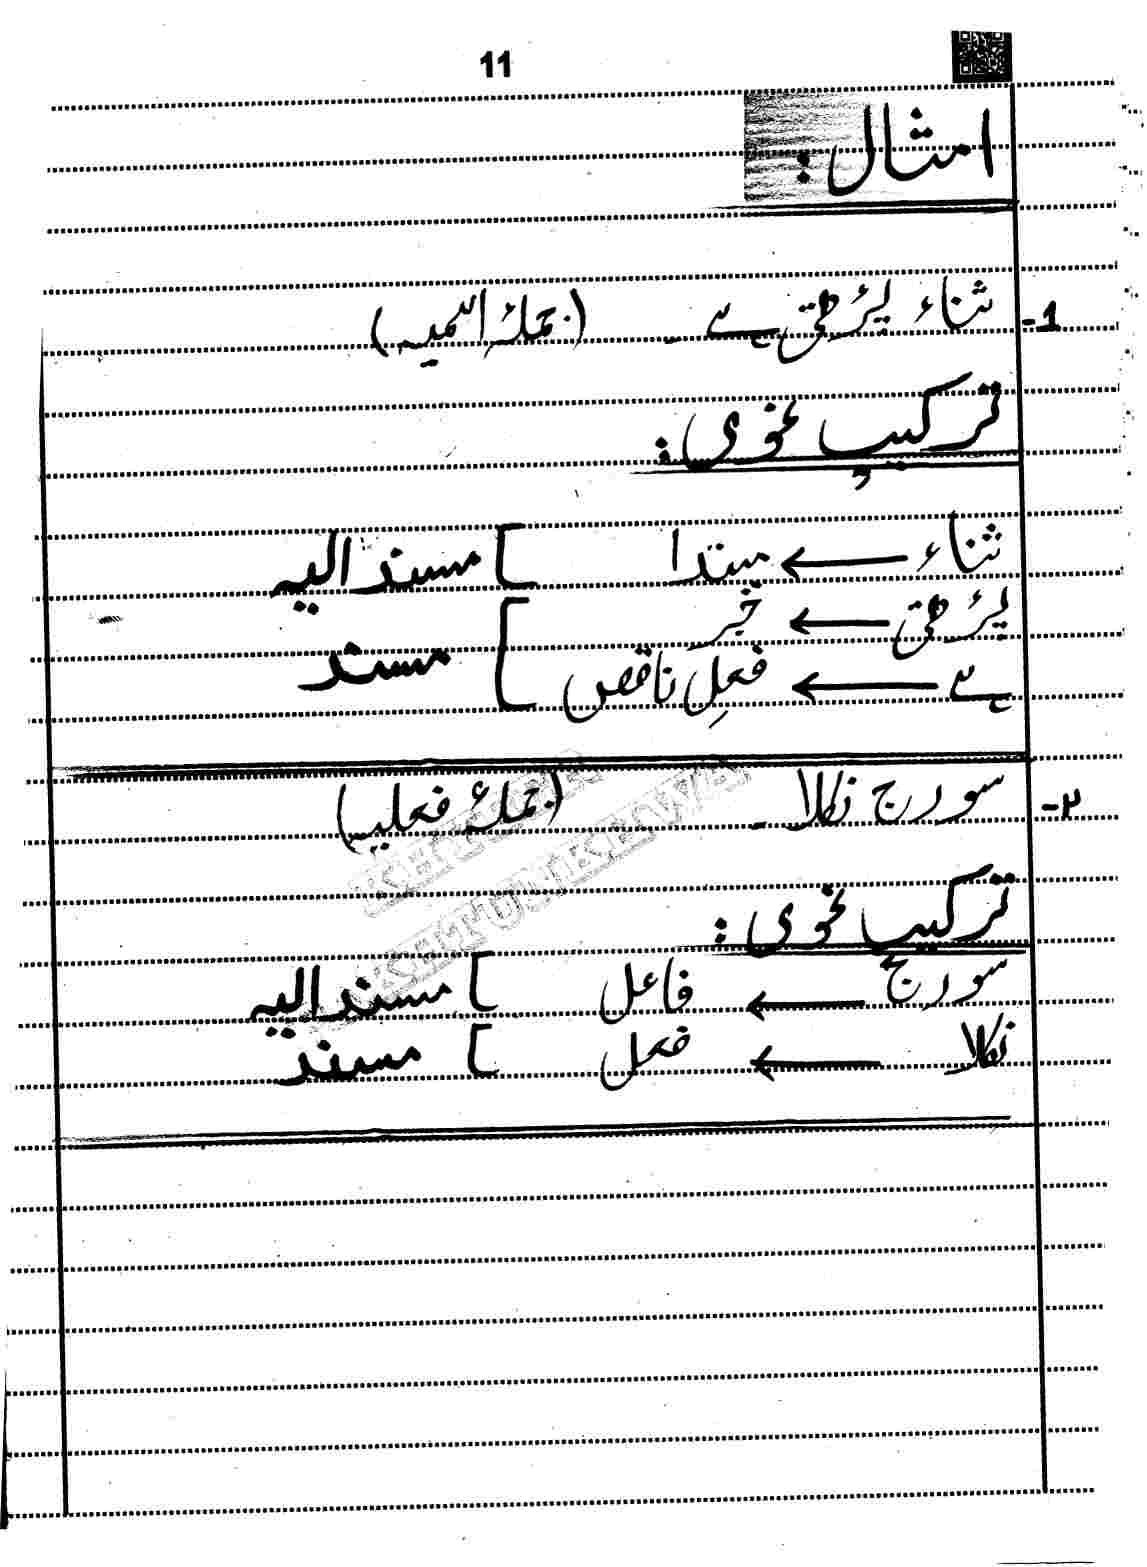 11
امثال:
1- ثناء پڑھتی ہے۔ (جملۂ اسمیہ)
ترکیبِ نحوی:
ثناء ← مبتدا ] مسند الیہ
پڑھتی ← خبر ] مسند
ہے ← فعلِ ناقص
۲- سورج نکلا۔ (جملۂ فعلیہ)
ترکیب نحوی:
سورج ← فاعل ] مسند الیہ
نکلا ← فعل ] مسند